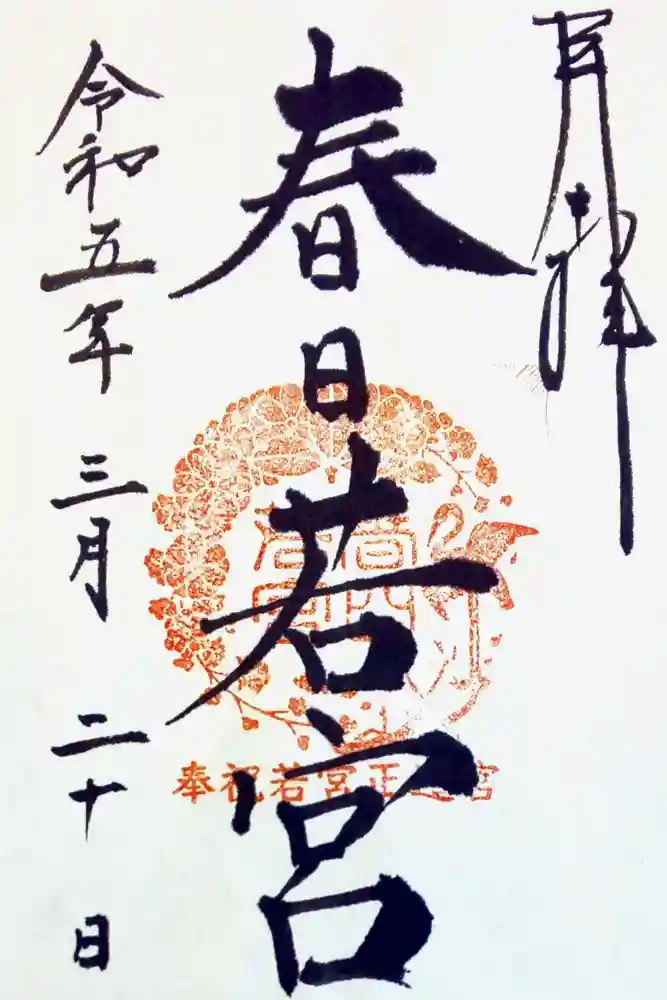 拝
春日若宮
奉祝若宮正遷宮
令和五年三月二十日